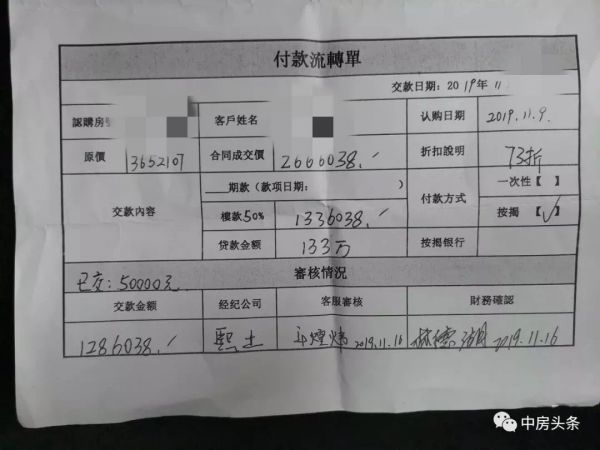 付款流轉單
交款日期：2019年11
認購房號 客戶姓名 认购日期 2019.11.9.
原價 3652107 合同成交價 2666038./ 折扣說明 73折
交款內容 期款（款项日期： ） 付款方式 一次性【 】
樓款50% 1336038./ 按揭 【✓】
贷款金额 133万 按揭银行
審核情況
已交：50000元
交款金额 经纪公司 客服審核 財務確認
1286038./ 熙土 2019.11.16 2019.11.16
中房头条